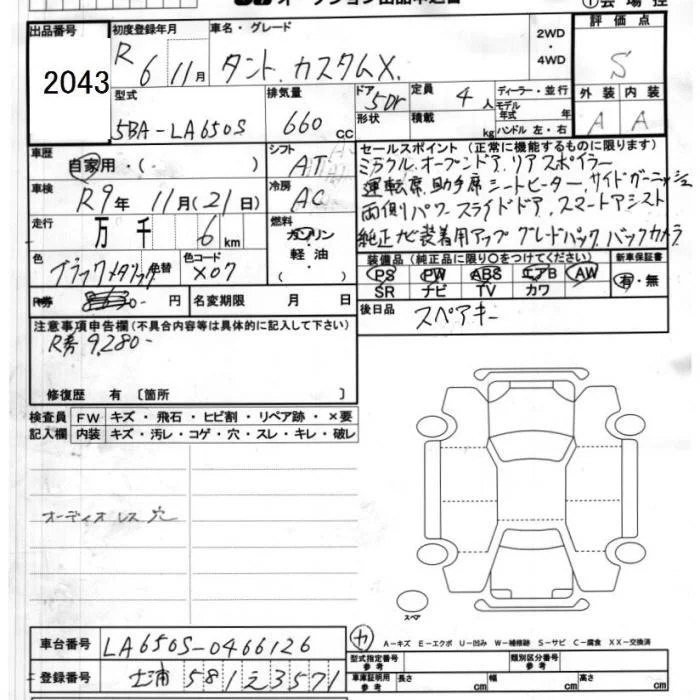 オークション出品申込書
①会場控
出品番号 2043
初度登録年月 R 6 11月
車名・グレード タント カスタムX.
2WD・4WD
評価点 S
外装 A 内装 A
型式 5BA-LA650S
排気量 660 cc
ドア 5Dr
形状
定員 4 人
積載 kg
ディーラー・並行
モデル年式 年
ハンドル 左・右
車歴 自家用・( )
シフト AT
車検 R9年 11月(21日)
冷房 AC
走行 万 千 6 km
燃料 ガソリン・軽油・( )
色 ブラックメタリック 色替
色コード X07
R券 円
名変期限 月 日
セールスポイント (正常に機能するものに限ります)
ミラクルオープンドア.リアスポイラー
運転席.助手席シートヒーター.サイドガーニッシュ
両側パワースライドドア.スマートアシスト
純正ナビ装着用アップグレードパック バックカメラ
装備品(純正品に限り○をつけてください)
PS PW ABS エアB AW
SR ナビ TV カワ
新車保証書 有・無
後日品 スペアキー
注意事項申告欄(不具合内容等は具体的に記入して下さい)
R券 9,280-
修復歴 有 〔箇所 〕
検査員記入欄
FW キズ・飛石・ヒビ割・リペア跡・×要
内装 キズ・汚レ・コゲ・穴・スレ・キレ・破レ
オーディオレス穴
スペア
車台番号 LA650S-0466126
登録番号 土浦 581 え 3571
カ
A-キズ E-エクボ U-凹み W-補修跡 S-サビ C-腐食 XX-交換済
型式指定番号 参考
類別区分番号 参考
車庫証明用 参考 長さ cm 幅 cm 高さ cm